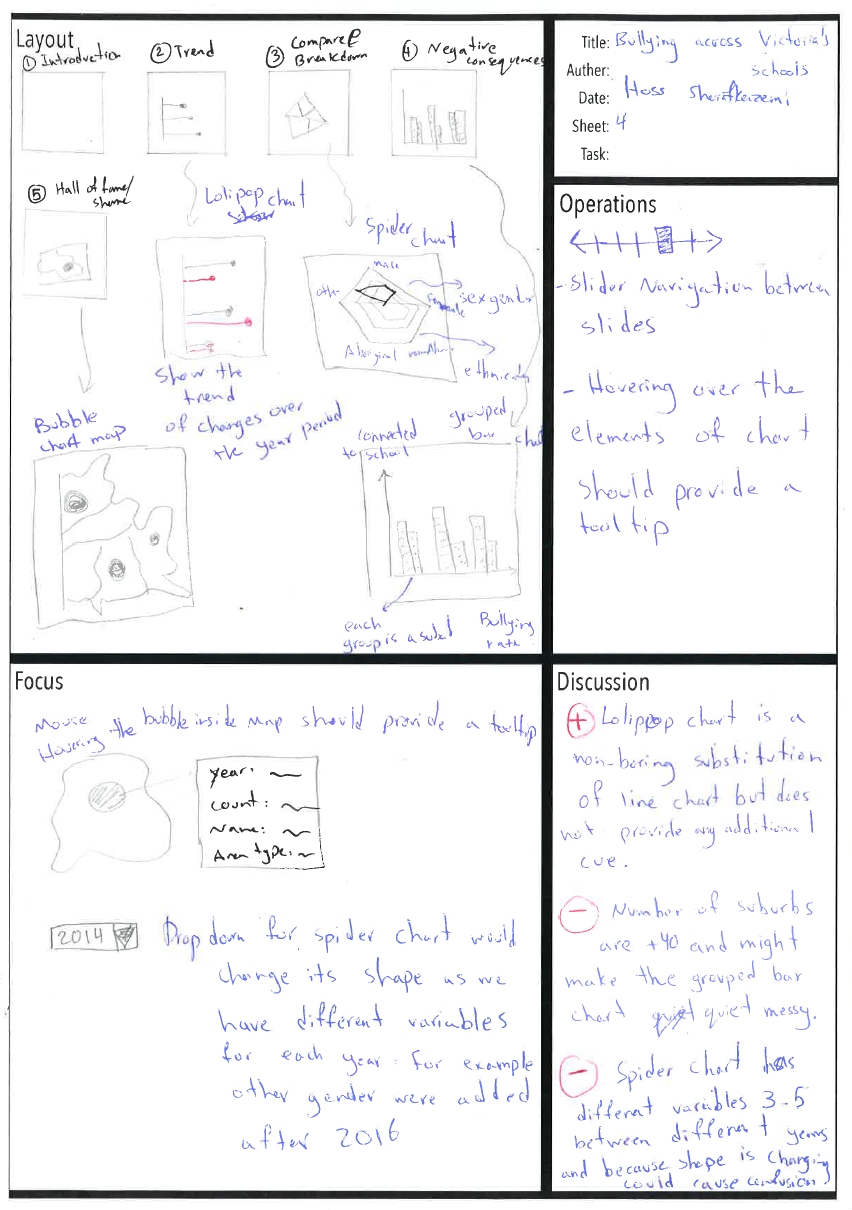 Layout
① Introduction
② Trend
③ Compare &
Breakdown
④ Negative
consequences
⑤ Hall of fame/
shame
Lolipop chart
Spider
chart
male
other
female
sex gender
Aboriginal
ethnicity
Show the
trend
of changes over
the year period
Bubble
chart map
grouped
bar chart
connected
to school
each
group is a suburb
Bullying
rate
Title: Bullying across Victoria's
schools
Auther:
Date: Hass
Sheet: 4
Task:
Operations
- Slider Navigation between
slides
- Hovering over the
elements of chart
should provide a
tooltip
Focus
Mouse
Hovering the bubble inside Map should provide a tooltip
year:
count:
Name:
Area type:
2014
Drop down for spider chart would
change its shape as we
have different variables
for each year. for example
other gender were added
after 2016
Discussion
+ Lolippop chart is a
non-boring substitution
of line chart but does
not provide any additional
cue.
- Number of suburbs
are +40 and might
make the grouped bar
chart quiet messy.
- Spider chart has
different variables 3-5
between different years
and because shape is changing
could cause confusion